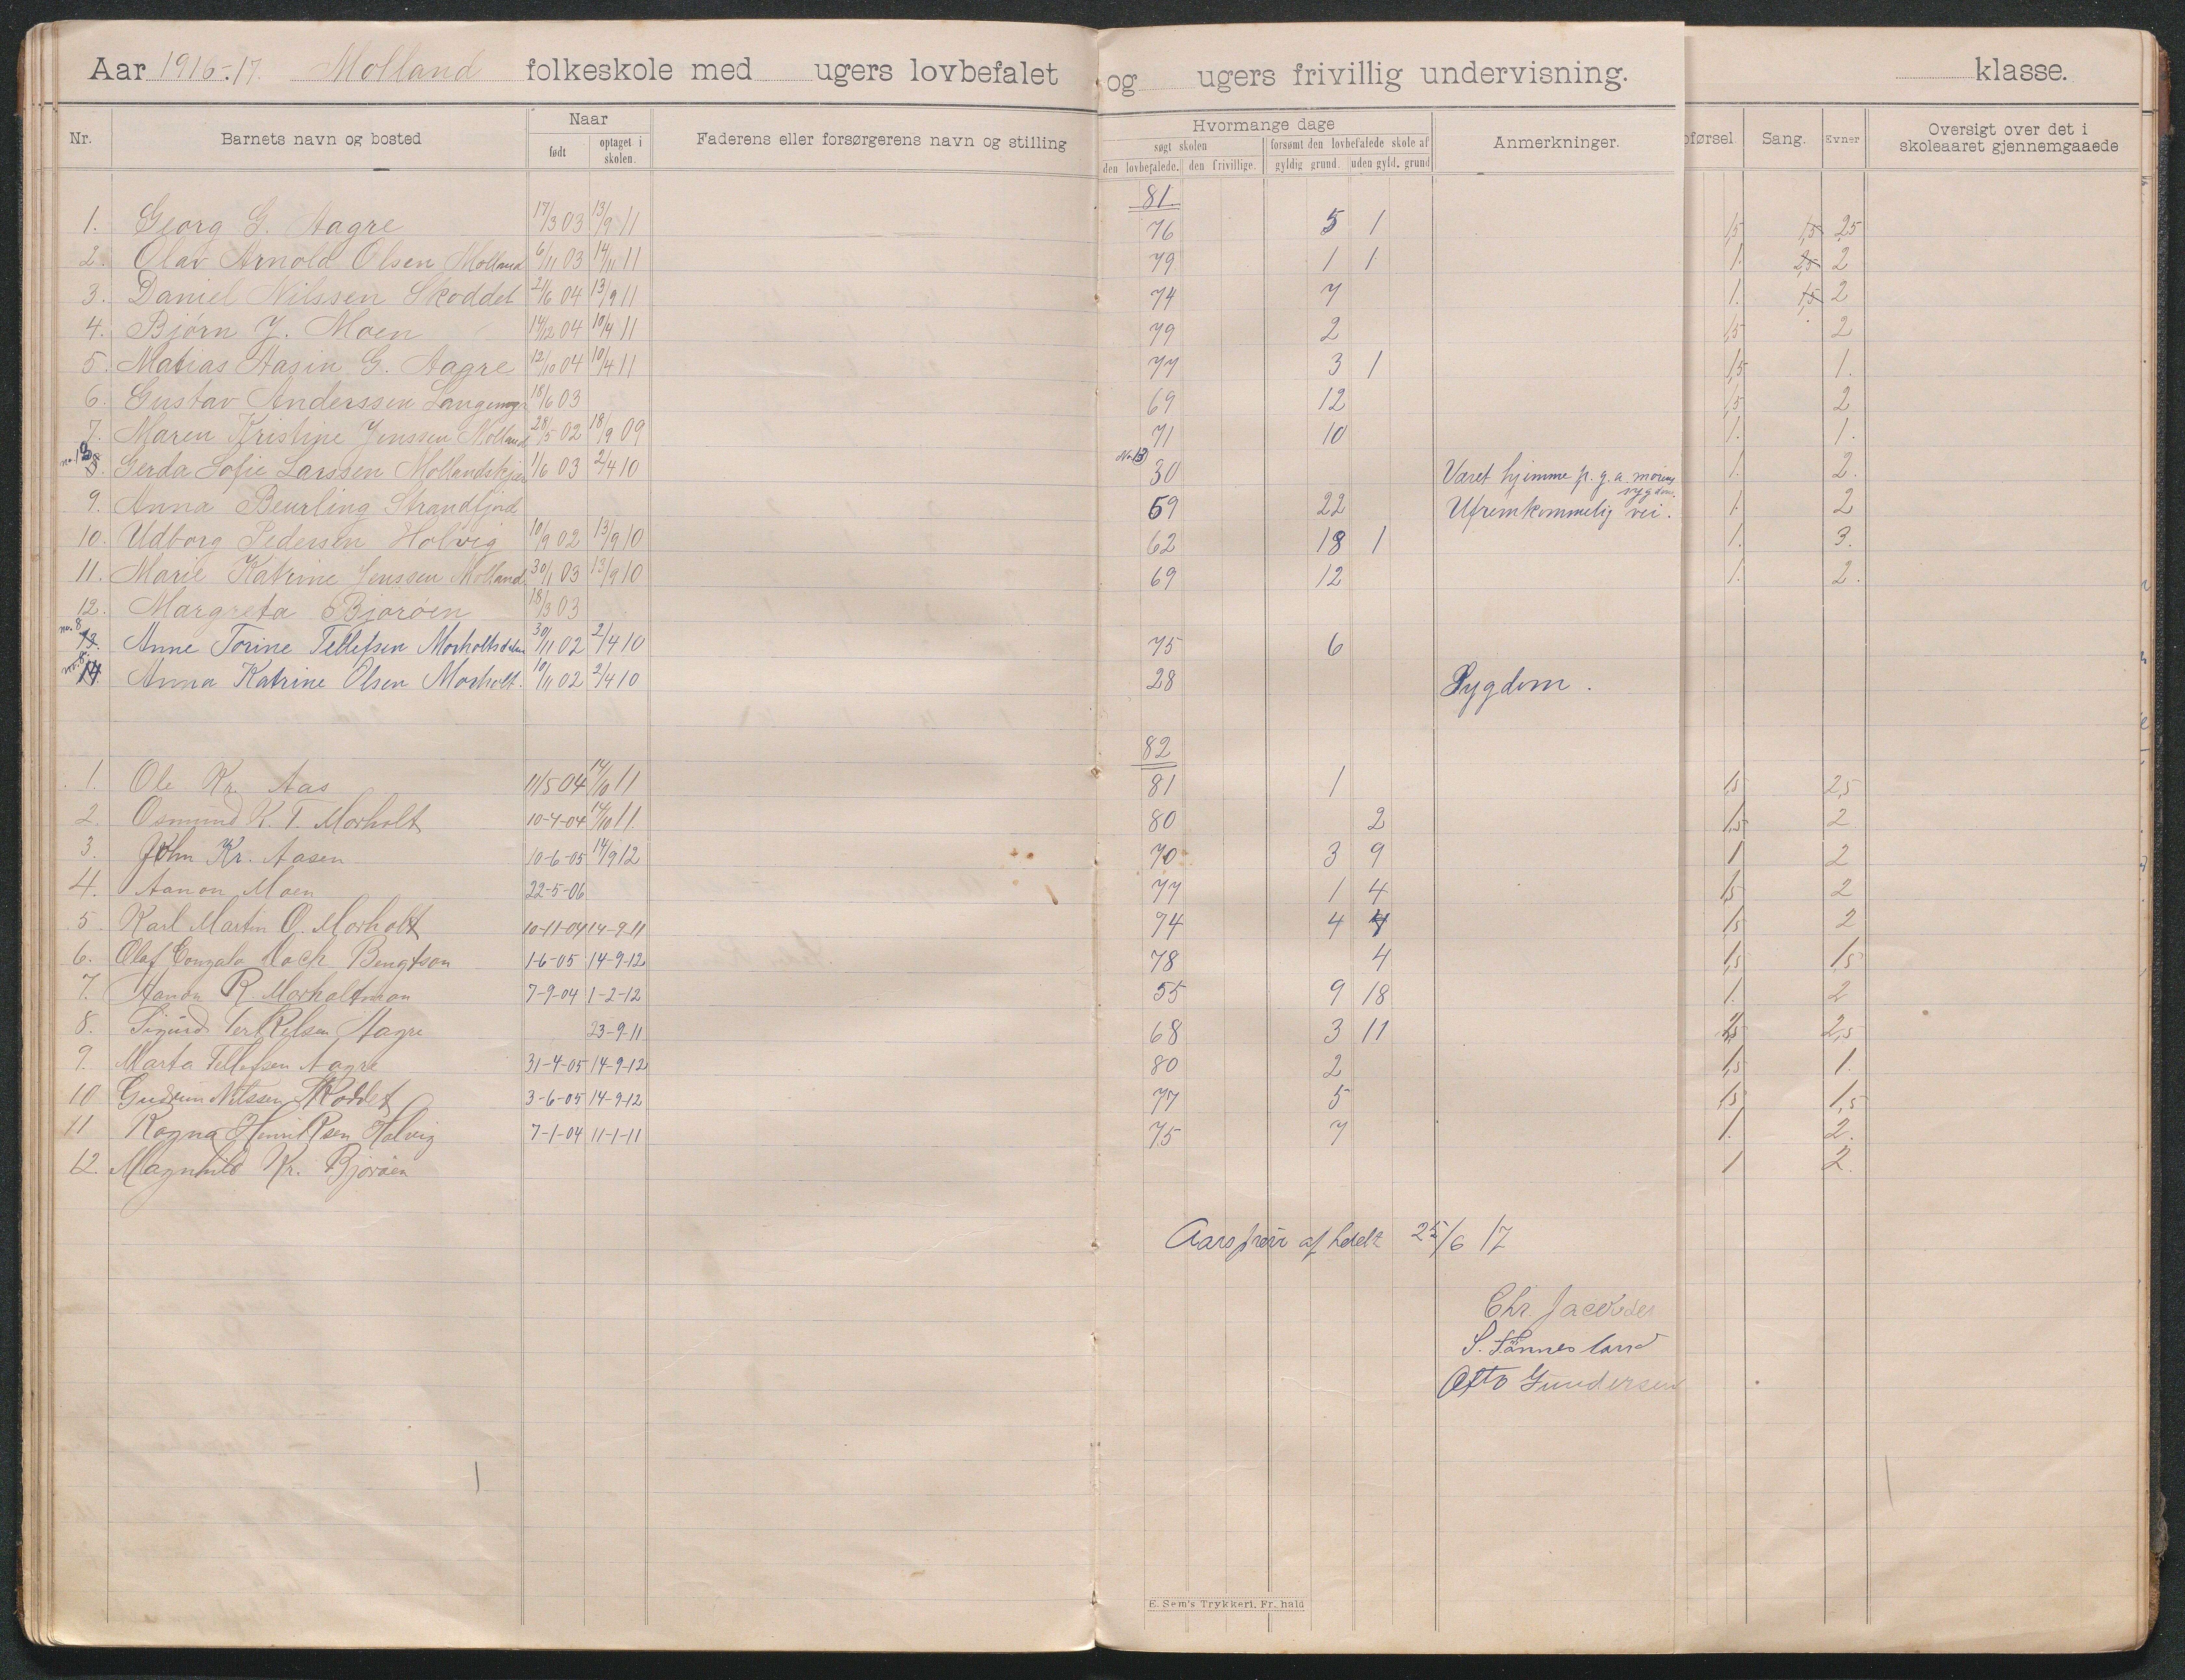 Aar 1916-17. Molland folkeskole med ugers lovbefalet og ugers frivillig undervisning. klasse.
Nr. Barnets navn og bosted Naar født optaget i skolen. Faderens eller forsørgerens navn og stilling Hvormange dage søgt skolen den lovbefalede. den frivillige. forsømt den lovbefalede skole af gyldig grund. uden gyld. grund Anmerkninger. pførsel. Sang. Evner Oversigt over det i skoleaaret gjennemgaaede
81.
1. Georg G. Aagre 17/3 03 13/9 11 76 5 1 1,5 1,5 2,5
2. Olav Arnold Olsen Molland 6/11 03 14/11 11 79 1 1 1. 2,5 2
3. Daniel Nilssen Skoddet 21/6 04 13/9 11 74 7 1. 1,5 2
4. Bjørn J. Moen 14/12 04 10/4 11 79 2 1,5 2
5. Matias Aasin G. Aagre 12/10 04 10/4 11 77 3 1 1,5 1.
6. Gustav Anderssen 18/6 03 69 12 1,5 2
7. Maren Kristine Jenssen Molland 28/5 02 18/9 09 71 10 1. 1.
no. 13 8. Gerda Sofie Larssen Mollandskjær 1/6 03 2/4 10 No. 13 30 Været hjemme p. g. a. morens sygdom. 1. 2.
9. Anna Beurling Strandfjord 59 22 Ufremkommelig vei. 1. 2
10. Udborg Pedersen Holvig 10/9 02 13/9 10 62 18 1 1. 3.
11. Marie Katrine Jenssen Molland 30/1 03 13/9 10 69 12 1. 2.
12. Margreta Bjorøen 18/3 03
no. 8 13. Anne Torine Tellefsen Morholtsdalen 30/11 02 2/4 10 75 6
no. 8. 14. Anna Katrine Olsen Morholt. 10/11 02 2/4 10 28 Sygdom.
82
1. Ole Kr. Aas 11/5 04 14/10 11 81 1 1,5 2,5
2. Osmund K. T. Morholt 10-4-04 14/10 11. 80 2 1,5 2
3. John Kr. Aasen 10-6-05 14/9 12 70 3 9 1 2
4. Aanon Moen 22-5-06 77 1 4 1,5 2
5 Karl Martin O. Morholt 10-11-04 14-9-11 74 4 4 1,5 2
6. Olaf Gonzalo Bengtson 1-6-05 14-9-12 78 4 1,5 1,5
7. Aanon R. Morholtmon 7-9-04 1-2-12 55 9 18 1. 2
8. Sigurd Terkelsen Aagre 23-9-11 68 3 11 2,5 2,5
9. Marta Tellefsen Aagre 31-4-05 14-9-12 80 2 1,5 1.
10 Gudrun Nilssen Skoddet 3-6-05 14-9-12 77 5 1,5 1,5
11 Ragna Henriksen Holvig 7-1-04 11-1-11 75 7 1. 2.
12. Magnhild Kr. Bjorøen 1 2.
Aarsprøve afholdt 25/6 17
Chr. Jacobsen
S. Tønnesland
Otto Gundersen
E. Sem's Trykkeri, Fr.hald